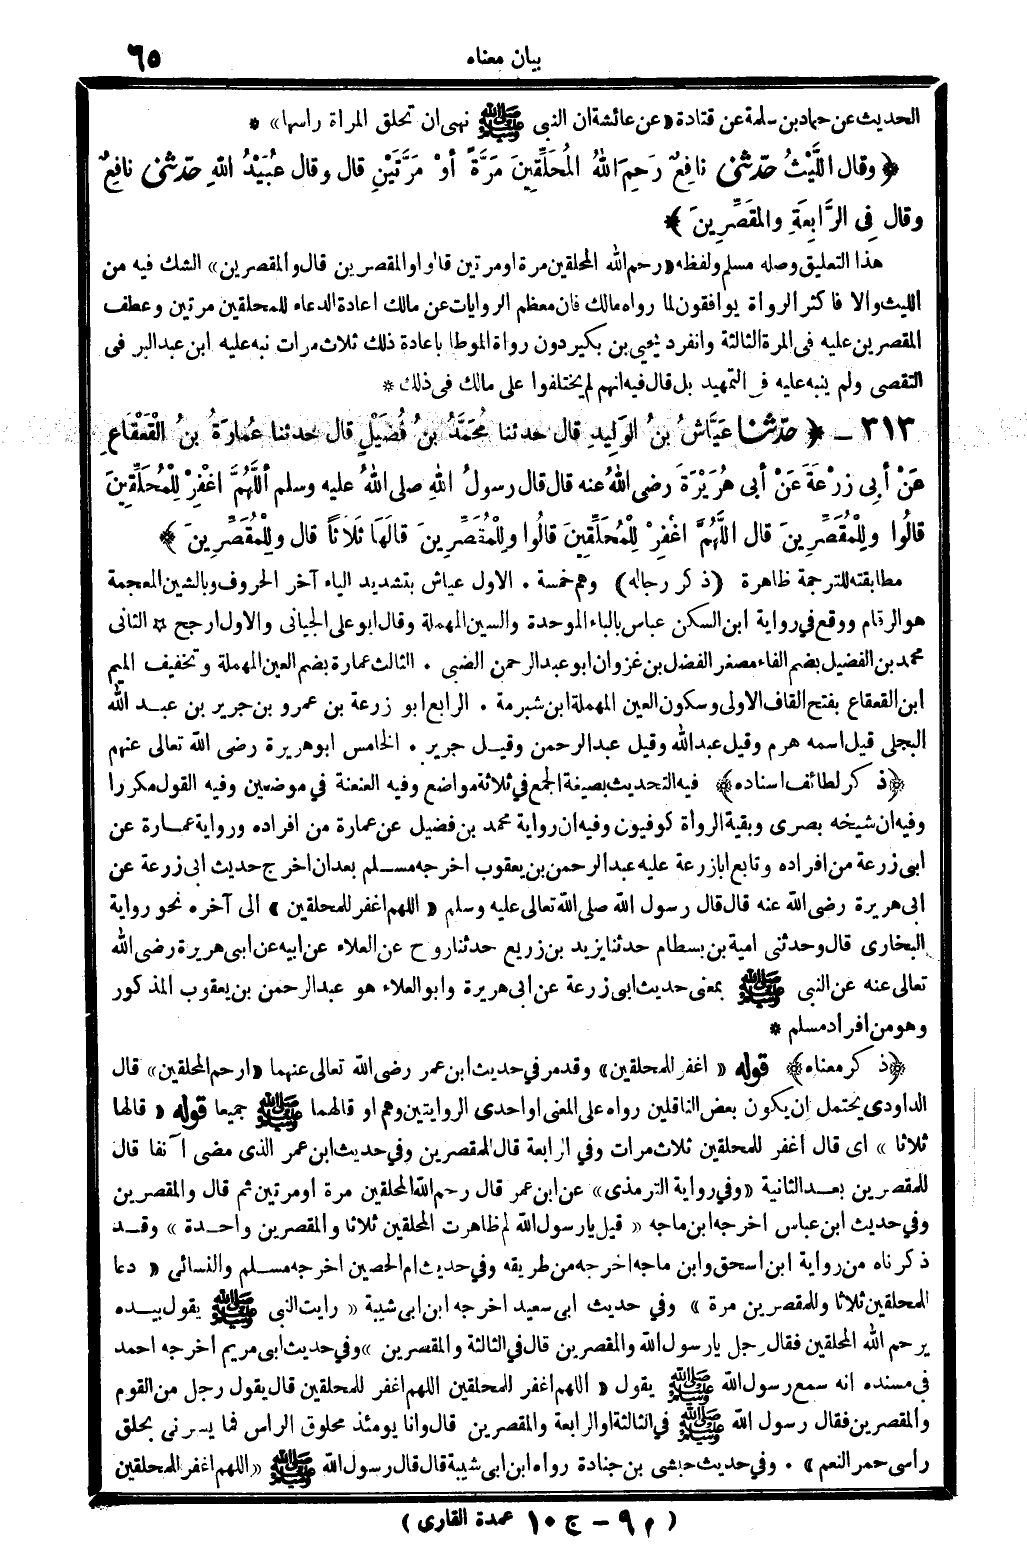 بيان معناه ٦٥
الحديث عن حماد بن سلمة عن قتادة «عن عائشة ان النبى ﷺ نهى ان تحلق المراة راسها» *
﴿ وقال اللَّيْثُ حَدّثنى نافِعٌ رَحِمَ اللهُ المُحَلِّقِينَ مَرَّةً أوْ مَرَّتَيْنِ قال وقال عُبَيْدُ اللهِ حَدّثنى نافِعٌ
وقال فِى الرَّابِعَةِ والمُقَصِّرِينَ ﴾
هذا التعليق وصله مسلم ولفظه «رحم الله المحلقين مرة او مرتين قالوا والمقصرين قال والمقصرين» الشك فيه من
الليث والا فاكثر الرواة يوافقون لما رواه مالك فان معظم الروايات عن مالك اعادة الدعاء للمحلقين مرتين وعطف
المقصرين عليه فى المرة الثالثة وانفرد يحيى بن بكير دون رواة الموطا باعادة ذلك ثلاث مرات نبه عليه ابن عبدالبر فى
التقصى ولم ينبه عليه فى التمهيد بل قال فيه انهم لم يختلفوا على مالك فى ذلك *
٣١٣ - ﴿ حَدّثنا عَيَّاشُ بنُ الوَلِيدِ قال حدثنا مُحَمَّدُ بنُ فُضَيْلٍ قال حدثنا عُمارَةُ بنُ القَعْقَاعِ
عَنْ أبِى زُرْعَةَ عَنْ أبى هُرَيْرَةَ رضى اللهُ عنه قال قال رسولُ اللهِ صلى اللهُ عليه وسلم أللَّهُمَّ اغْفِرْ لِلْمُحَلِّقِينَ
قالُوا ولِلْمُقَصِّرِينَ قال اللَّهُمَّ اغْفِرْ لِلْمُحَلِّقِينَ قالُوا ولِلْمُقَصِّرِينَ قالَهَا ثَلاَثاً قال ولِلْمُقَصِّرِينَ ﴾
مطابقته للترجمة ظاهرة (ذكر رجاله) وهم خمسة . الاول عياش بتشديد الياء آخر الحروف وبالشين المعجمة
هو الرقام ووقع فى رواية ابن السكن عباس بالباء الموحدة والسين المهملة وقال ابو على الجيانى والاول ارجح * الثانى
محمد بن الفضيل بضم الفاء مصغر الفضل بن غزوان ابو عبدالرحمن الضبى . الثالث عمارة بضم العين المهملة وتخفيف الميم
ابن القعقاع بفتح القاف الاولى وسكون العين المهملة ابن شبرمة . الرابع ابو زرعة بن عمرو بن جرير بن عبد الله
البجلى قيل اسمه هرم وقيل عبدالله وقيل عبدالرحمن وقيل جرير . الخامس ابو هريرة رضى الله تعالى عنهم
﴿ذكر لطائف اسناده﴾ فيه التحديث بصيغة الجمع فى ثلاثة مواضع وفيه العنعنة فى موضعين وفيه القول مكررا
وفيه ان شيخه بصرى وبقية الرواة كوفيون وفيه ان رواية محمد بن فضيل عن عمارة من افراده ورواية عمارة عن
ابى زرعة من افراده وتابع ابا زرعة عليه عبدالرحمن بن يعقوب اخرجه مسلم بعد ان اخرج حديث ابى زرعة عن
ابى هريرة رضى الله عنه قال قال رسول الله صلى الله تعالى عليه وسلم «اللهم اغفر للمحلقين» الى آخره نحو رواية
البخارى قال وحدثنى امية بن بسطام حدثنا يزيد بن زريع حدثنا روح عن العلاء عن ابيه عن ابى هريرة رضى الله
تعالى عنه عن النبى ﷺ بمعنى حديث ابى زرعة عن ابى هريرة وابو العلاء هو عبدالرحمن بن يعقوب المذكور
وهو من افراد مسلم *
﴿ذكر معناه﴾ قوله «اغفر للمحلقين» وقد مر فى حديث ابن عمر رضى الله تعالى عنهما «ارحم المحلقين» قال
الداودى يحتمل ان يكون بعض الناقلين رواه على المعنى او احدى الروايتين وهم او قالهما ﷺ جميعا قوله «قالها
ثلاثا» اى قال اغفر للمحلقين ثلاث مرات وفى الرابعة قال للمقصرين وفى حديث ابن عمر الذى مضى آنفا قال
للمقصرين بعد الثانية «وفى رواية الترمذى» عن ابن عمر قال رحم الله المحلقين مرة او مرتين ثم قال والمقصرين
وفى حديث ابن عباس اخرجه ابن ماجه «قيل يارسول الله لم ظاهرت المحلقين ثلاثا والمقصرين واحدة» وقد
ذكرناه من رواية ابن اسحق وابن ماجه اخرجه من طريقه وفى حديث ام الحصين اخرجه مسلم والنسائى «دعا
للمحلقين ثلاثا وللمقصرين مرة» وفى حديث ابى سعيد اخرجه ابن ابى شيبة «رايت النبى ﷺ يقول بيده
يرحم الله المحلقين فقال رجل يارسول الله والمقصرين قال فى الثالثة والمقصرين» وفى حديث ابى مريم اخرجه احمد
فى مسنده انه سمع رسول الله ﷺ يقول «اللهم اغفر للمحلقين اللهم اغفر للمحلقين قال يقول رجل من القوم
والمقصرين فقال رسول الله ﷺ فى الثالثة او الرابعة والمقصرين قال وانا يومئذ محلوق الراس فما يسرنى بحلق
رأسى حمر النعم» . وفى حديث حبشى بن جنادة رواه ابن ابى شيبة قال قال رسول الله ﷺ «اللهم اغفر للمحلقين
(م ٩ - ج ١٠ عمدة القارى)